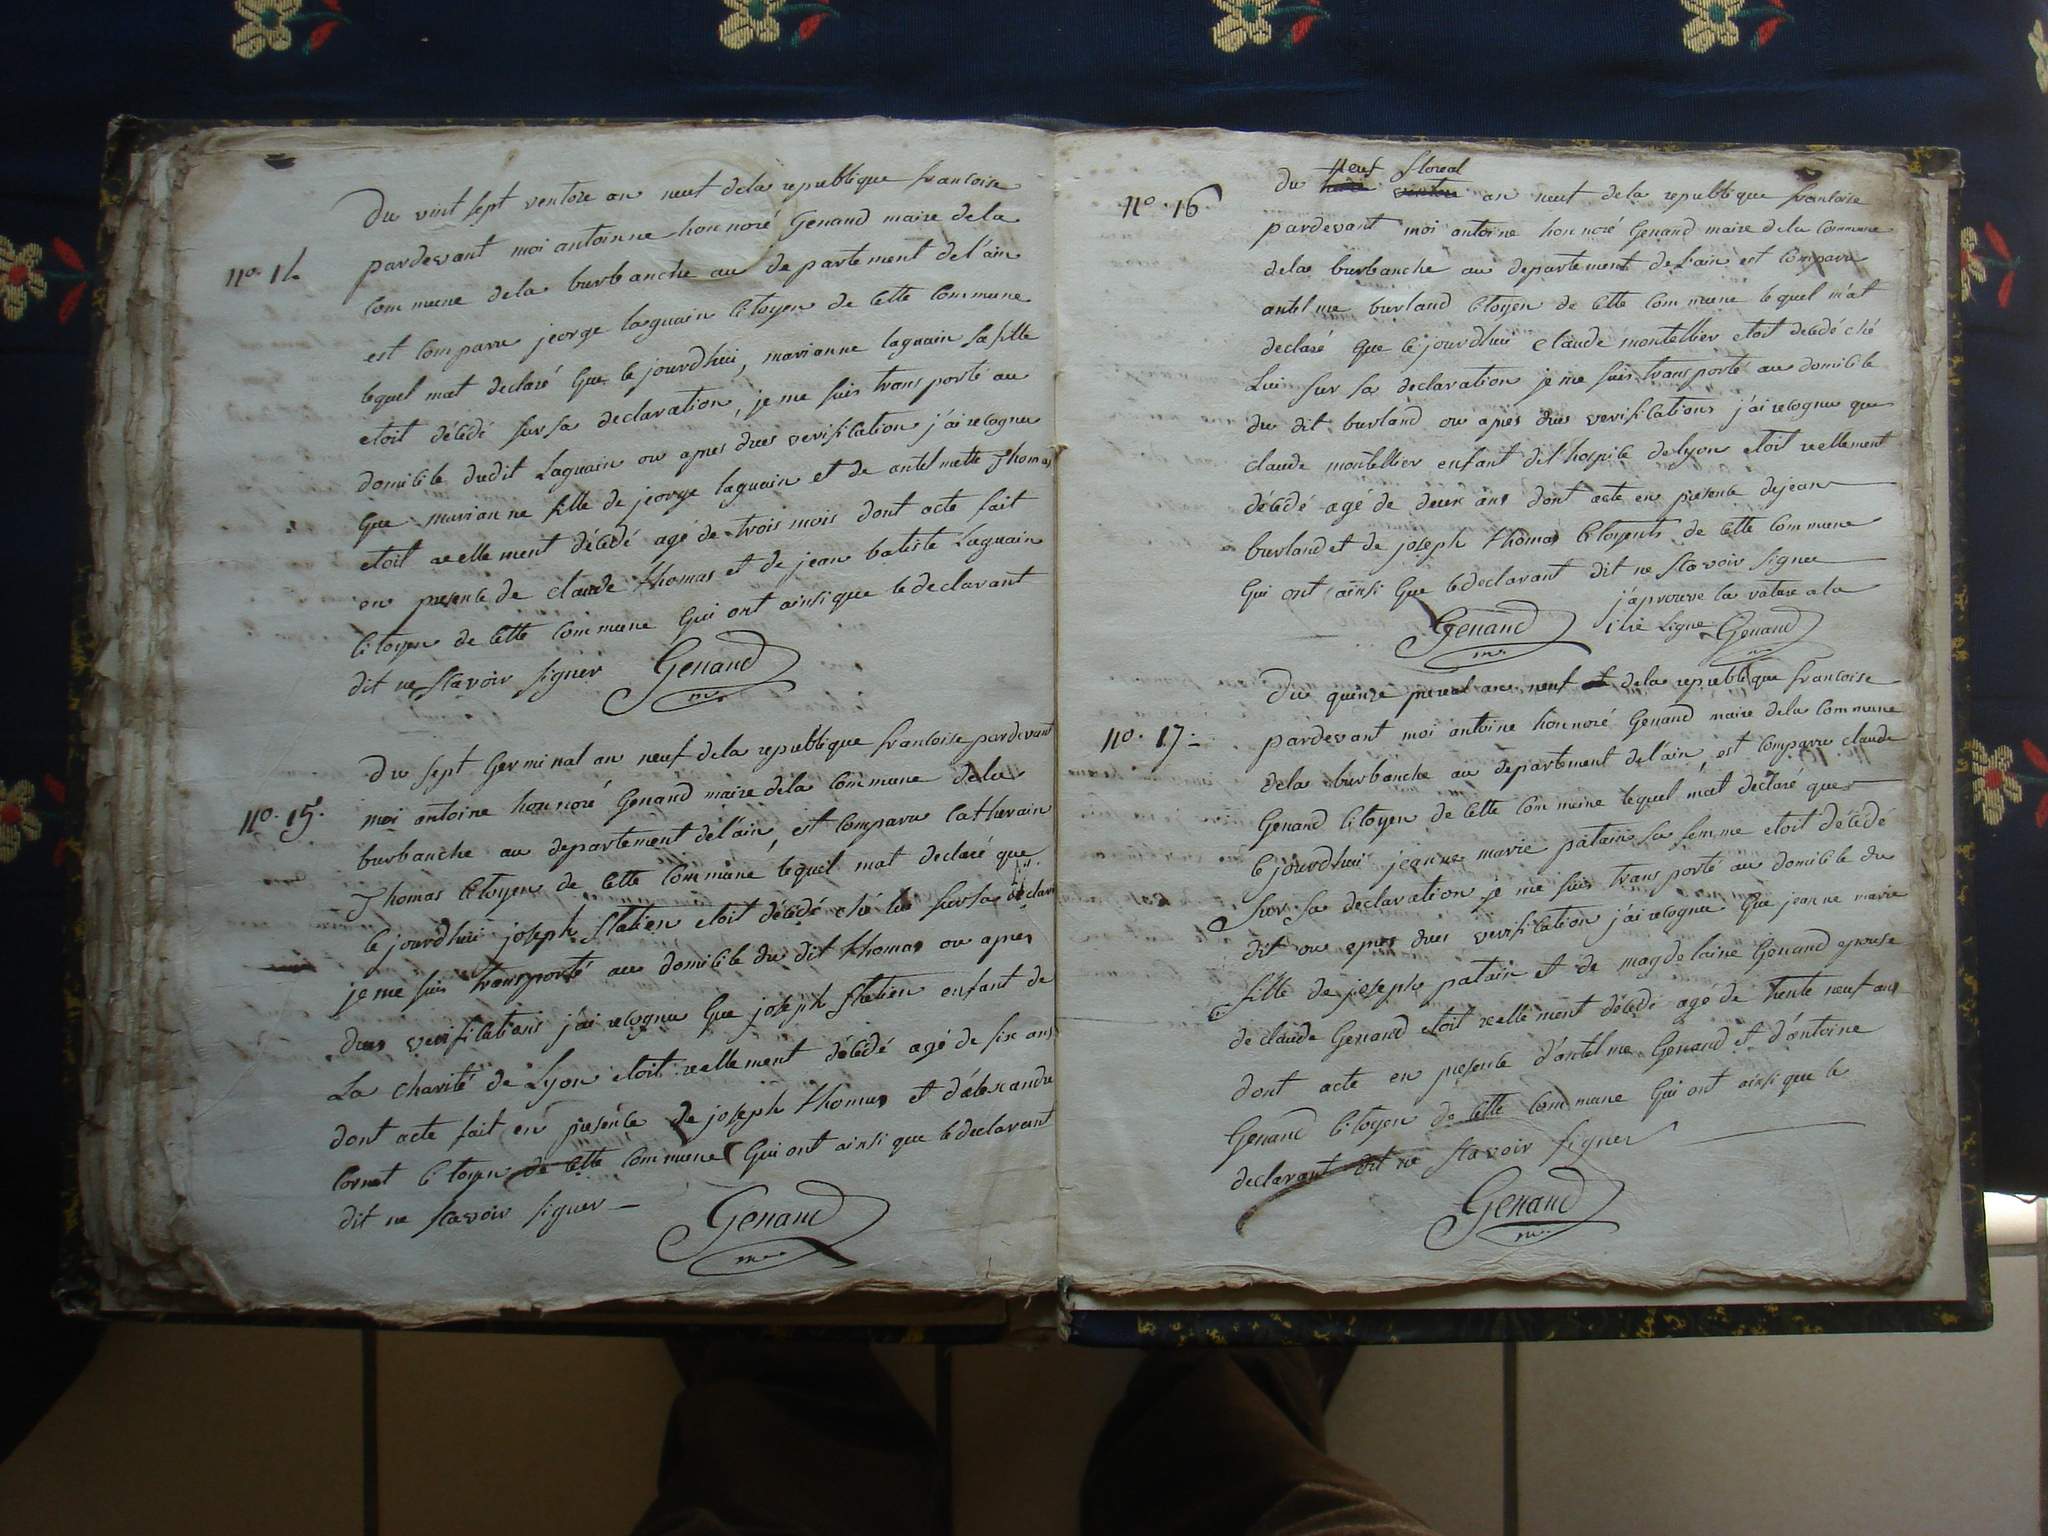 Du vint sept ventose an neuf dela republique francoise
n.o 14
pardevant moi antoinne honnoré Genand maire dela
commune dela burbanche au departement del'ain
est comparu jeorge laguain citoyen de cette commune
lequel mat declaré que ce jourdhui, marianne laguain sa fille
etoit décédé sur sa declaration, je me suis transporté au
domicile dudit Laguain ou apres dues verification j'ai recognu
que marianne fille de jeorge laguain et de antelmette Thomas
etoit reellement décédé agé de trois mois dont acte fait
en presence de claude thomas et de jean batiste Laguain
citoyen de cette commune qui ont ainsi que le declarant
dit ne scavoir signer Genand
Du sept Germinal an neuf dela republique francoise pardevant
n.o 15.
moi antoine honnoré Genand maire dela commune dela
burbanche au departement del'ain, est comparu catherain
Thomas citoyen de cette commune lequel mat declaré que
ce jourdhui joseph statien etoit décédé ché lui sur sa declara
je me suis transporté au domicile du dit thomas ou apres
dues verifications j'ai recognu que joseph statien enfant de
La charité de Lyon etoit reellement décédé agé de six ans
dont acte fait en presence de joseph thomas et d'alexandre
Cornet citoyen de cette commune qui ont ainsi que le declarant
dit ne scavoir signer
Genand
neuf floreal
n.o 16
Du ventose an neuf dela republique francoise
pardevant moi antoine honnoré Genand maire dela commune
dela burbanche au departement de l'ain est comparu
antelme burland citoyen de cette commune lequel m'at
declaré que ce jourdhui claude montellier etoit décédé ché
Lui sur sa declaration je me suis transporté au domicile
du dit burland ou apres dues verifications j'ai recognu que
claude montellier enfant del'hospice de lyon etoit reellement
décédé agé de deux ans dont acte en presence dejean
burland et de joseph thomas citoyents de cette commune
qui ont ainsi que le declarant dit ne scavoir signer
j'aprouve la rature a la
Genand
ligne Genand
Du quinze prereal an neuf dela republique francoise
n.o 17.
pardevant moi antoine honnoré Genand maire dela commune
dela burbanche au departement del'ain, est comparu claude
Genand citoyen de cette commune lequel m'at declaré que
ce jourdhui jeanne marie patain sa femme etoit décédé
sur sa declaration je me suis transporté au domicile du
dit ou apres dues verification j'ai recognu que jeanne marie
fille de joseph patain et de magdelaine Genand epouse
de claude Genand etoit reellement décédé agé de trente neuf ans
dont acte en presence d'antelme Genand et d'antoine
Genand citoyen de cette commune qui ont ainsi que le
declarant dit ne scavoir signer
Genand